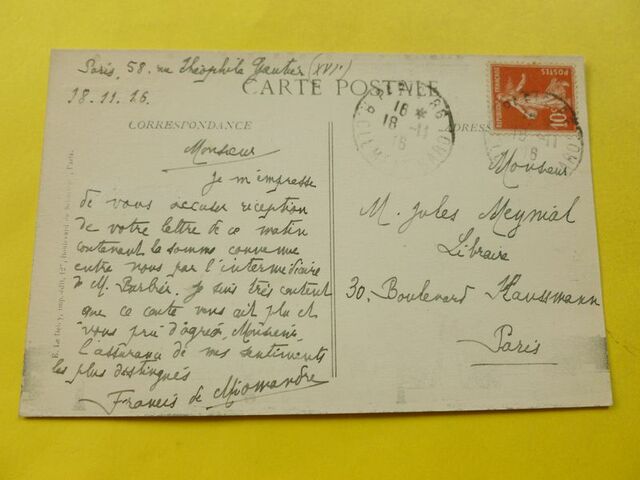 Paris, 58. rue Théophile Gautier (XVIe)
18.11.16
CARTE POSTALE
CORRESPONDANCE
ADRESSE
Monsieur
Je m'empresse
de vous accuser réception
de votre lettre de ce matin
contenant la somme convenue
entre nous par l'intermédiaire
de M. Barbier. Je suis très content
que ce conte vous ait plu et
vous prie d'agréer, Monsieur,
l'assurance de mes sentiments
les plus distingués
Francis de Miomandre
Monsieur
M. Jules Meynial
Libraire
30. Boulevard Haussmann
Paris
REPUBLIQUE FRANÇAISE
POSTES
10c
16 *
18 -11
16